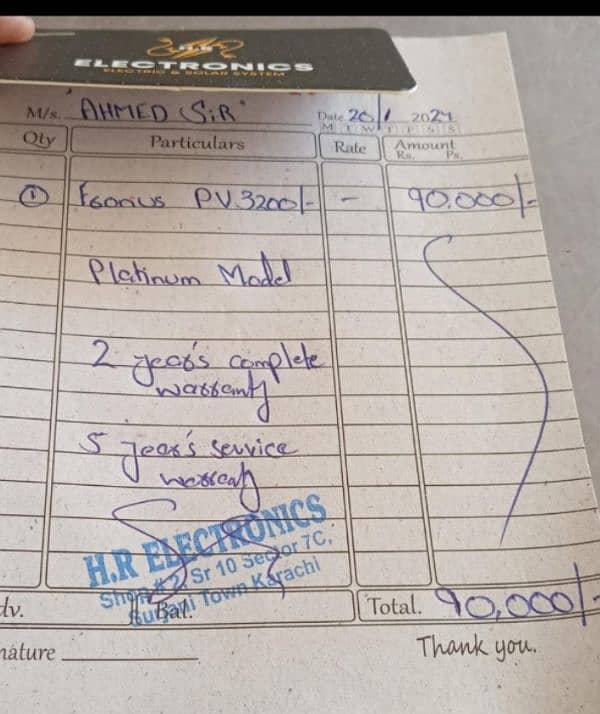 H.R
ELECTRONICS
ELECTRIC & SOLAR SYSTEM
M/s. AHMED SIR Date 20/1 2024
M T W T F S S
Qty Particulars Rate Amount
Rs. Ps.
① PV.3200/- - 90.000/-
Platinum Model
2 year's complete
warranty
5 year's service
warranty
H.R ELECTRONICS
Shop # 2, Sr 10 Sector 7C,
Town Karachi
dv. Bal. Total. 90,000/-
nature
Thank you.